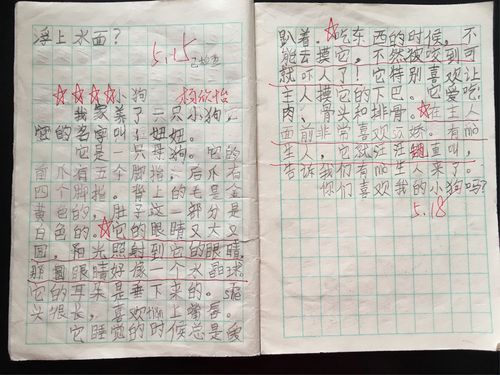 浮上水面？
5.15
小狗 杨欣怡
我家养了六只小狗，
它的名字叫仔妞妞。
它是一只母狗。它的
前爪有五个脚指，后爪有
四个脚指。背上的毛是金
黄色的，肚子这一部分是
白色的。它的眼睛又大又
圆，阳光照射到它的眼睛，
那圆眼睛好像一个水晶球。
它的耳朵是垂下来的。
头很长，喜欢tiǎn上嘴唇。
它睡觉的时候总是
趴着。吃东西的时候，不
能去摸它，不然被咬到可
就吓人了！它特别喜欢让
主人摸它的下巴。它爱吃
肉、骨头和排骨。在主人
面前非常喜欢 有mò
生人，它就汪汪 直叫，
告诉我们有mò生人来了。
你们喜欢我的小狗吗？
5.18